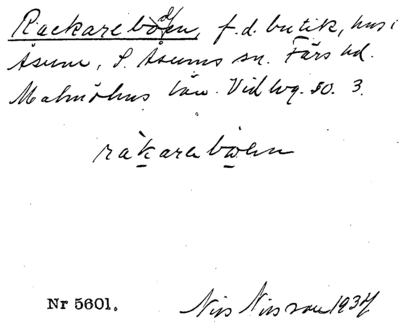 Rackareboden, f.d. butik, hus i
Åsum, S. Åsums sn. Färs hd.
Malmöhus län. Vid vg. 20. 3.
råkareboen
Nr 5601.
Nils Nilsson 1937